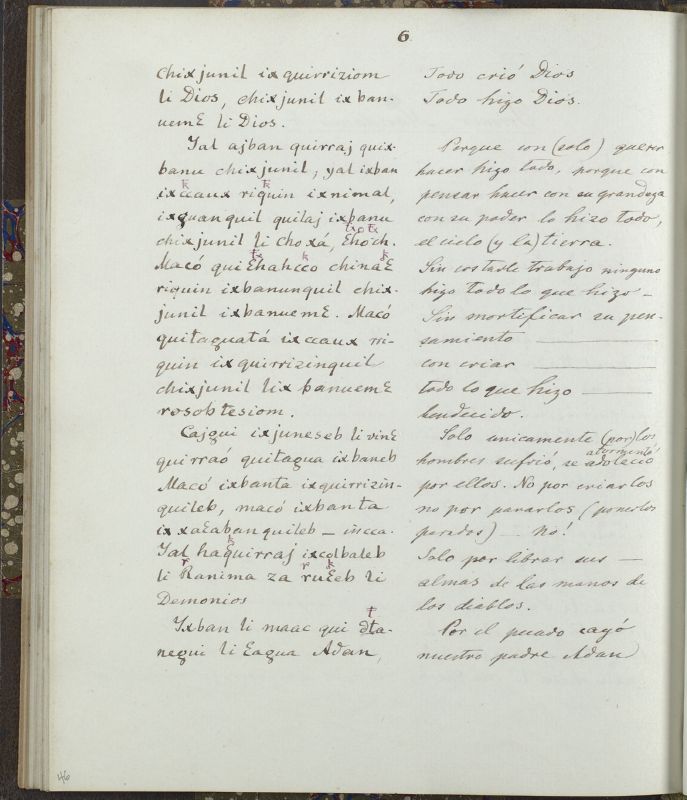 6
chixjunil ix quirriziom
li Dios, chixjunil ix ban-
uemƐ li Dios.
Yal ajban quirraj quix-
banu chixjunil, yal ixban
ixccaux riquin ixnimal,
k k
ixguanquil quilaj ixbanu
tx o tx
chixjunil li choxá, Ɛhoch.
tx k k
Macó qui Ɛhahcco chináƐ
riquin ixbanunquil chix-
junil ixbanuemƐ. Macó
quitaguatá ixccaux rri-
quin ix quirrizinquil
chixjunil lix banuemƐ
rosobtesiom.
Cajgui ixjuneseb li vinƐ
quirraó quitagua ixbaneb
Macó ixbanta ixquirrizin-
quileb, macó ixbanta
ixxaƐabanquileb – iñcca.
k
Yal haquirraj ixcolbaleb
r r k
li Ranima za ruƐeb li
Demonios
Yxban li maac qui dta-
t
negui li Ɛagua Adan,
Todo crió Dios
Todo hizo Dios.
Porque con (solo) querer
hacer hizo todo, porque con
pensar hacer con su grandeza
con su poder lo hizo todo,
el cielo (y la) tierra.
Sin costarle trabajo ninguno
hizo todo lo que hizo –
Sin mortificar su pen-
samiento
con criar
todo lo que hizo
bendecido.
Solo unicamente (por) los
atormentó
hombres sufrió, se adoleció
por ellos. No por criarlos
no por pararlos (ponerlos
parados) – No!
Solo por librar sus –
almas de las manos de
los diablos.
Por el pecado cayó
nuestro padre Adan
46